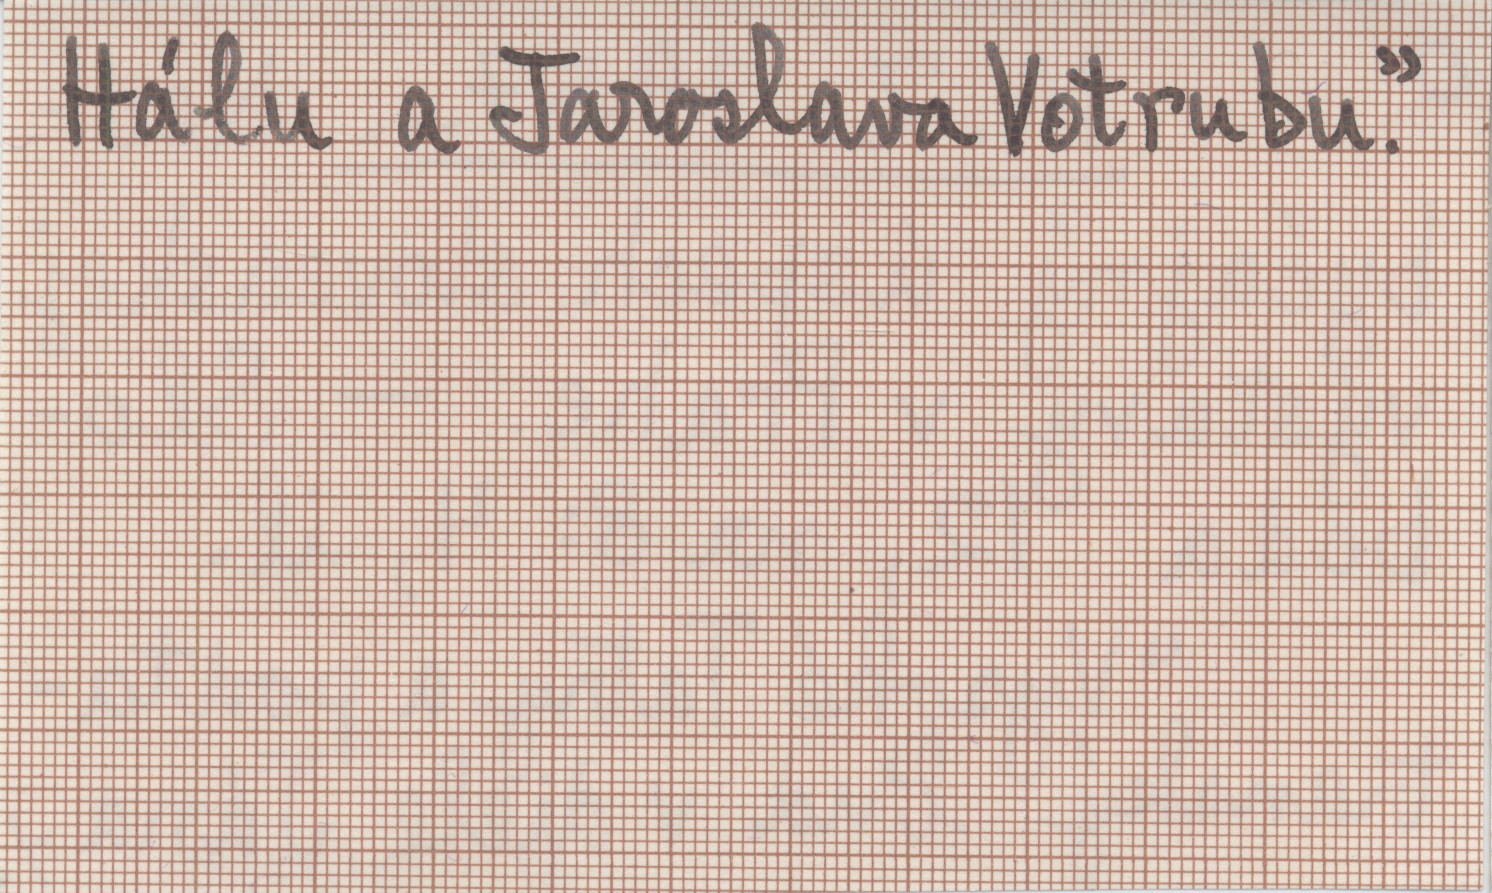 Hálu a Jaroslava Votrubu.”